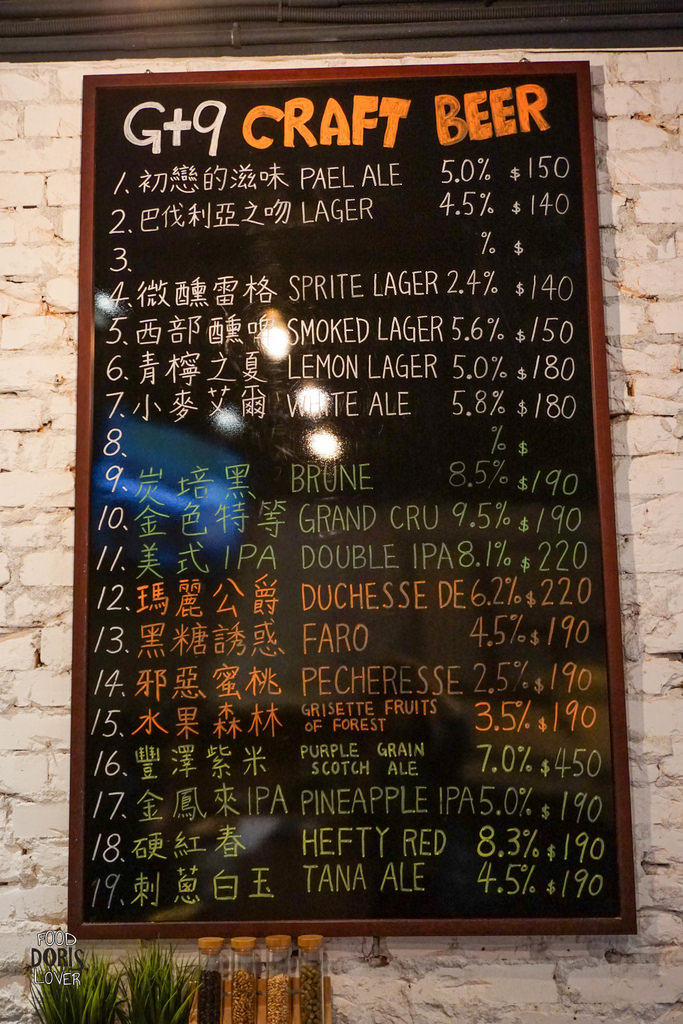 G+9 CRAFT BEER
1. 初戀的滋味 PAEL ALE 5.0% $150
2. 巴伐利亞之吻 LAGER 4.5% $140
3. % $
4. 微醺雷格 SPRITE LAGER 2.4% $140
5. 西部醺啤 SMOKED LAGER 5.6% $150
6. 青檸之夏 LEMON LAGER 5.0% $180
7. 小麥艾爾 WHITE ALE 5.8% $180
8. % $
9. 炭培黑 BRUNE 8.5% $190
10. 金色特等 GRAND CRU 9.5% $190
11. 美式IPA DOUBLE IPA 8.1% $220
12. 瑪麗公爵 DUCHESSE DE 6.2% $220
13. 黑糖誘惑 FARO 4.5% $190
14. 邪惡蜜桃 PECHERESSE 2.5% $190
15. 水果森林 GRISETTE FRUITS OF FOREST 3.5% $190
16. 豐澤紫米 PURPLE GRAIN SCOTCH ALE 7.0% $450
17. 金鳳來IPA PINEAPPLE IPA 5.0% $190
18. 硬紅春 HEFTY RED 8.3% $190
19. 刺蔥白玉 TANA ALE 4.5% $190
FOOD
DORIS
LOVER